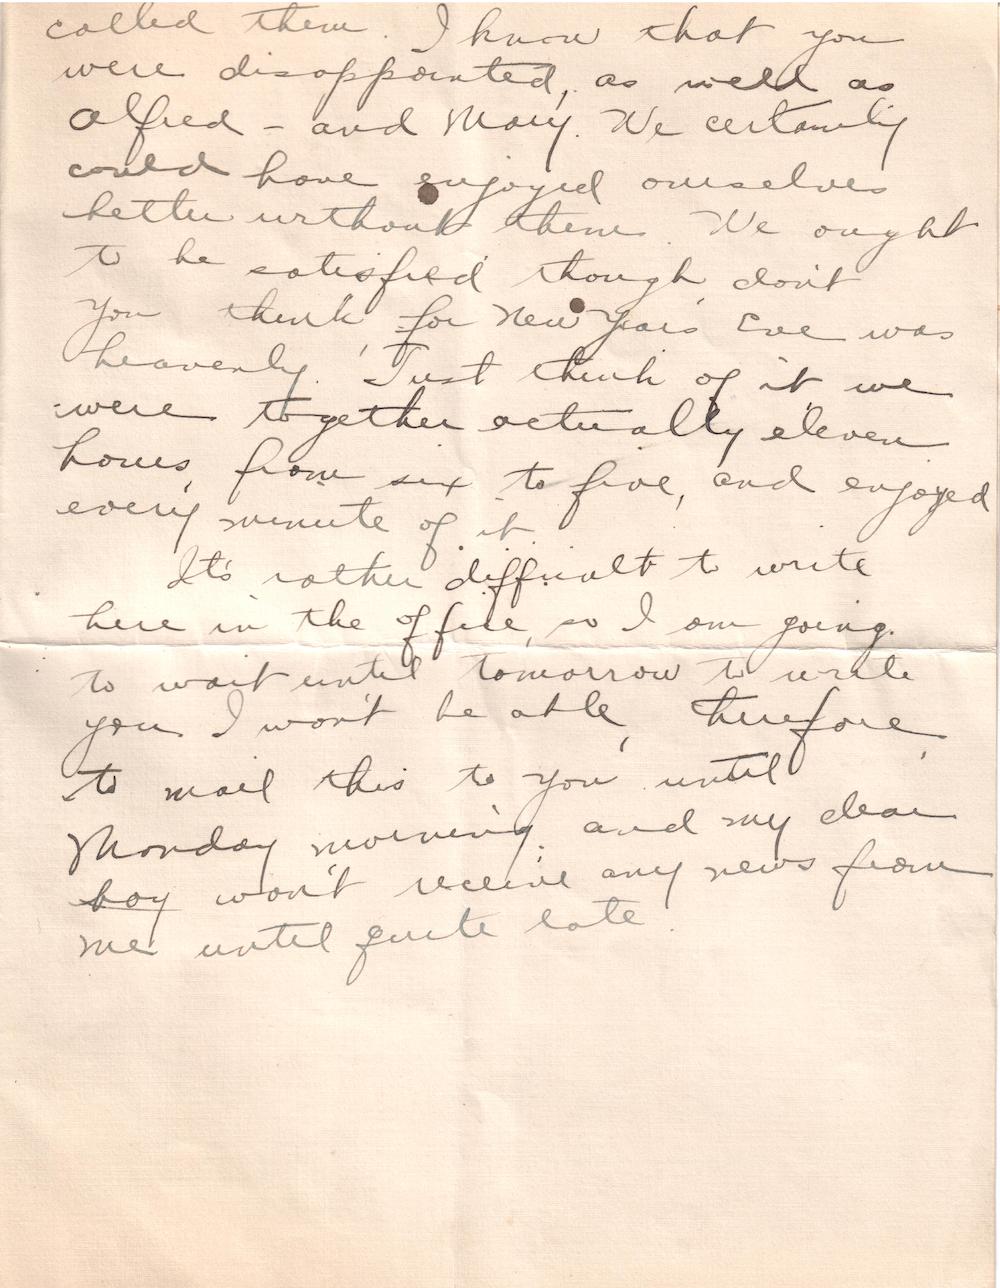 called them. I know that you
were disappointed, as well as
Alfred - and Mary. We certainly
could have enjoyed ourselves
better without them. We ought
to be satisfied though don't
you think, for New Year's Eve was
heavenly. Just think of it, we
were together actually eleven
hours, from six to five, and enjoyed
every minute of it.
It's rather difficult to write
here in the office, so I am going
to wait until tomorrow to write
you. I won't be able, therefore,
to mail this to you until
Monday morning, and my dear
boy won't receive any news from
me until quite late.